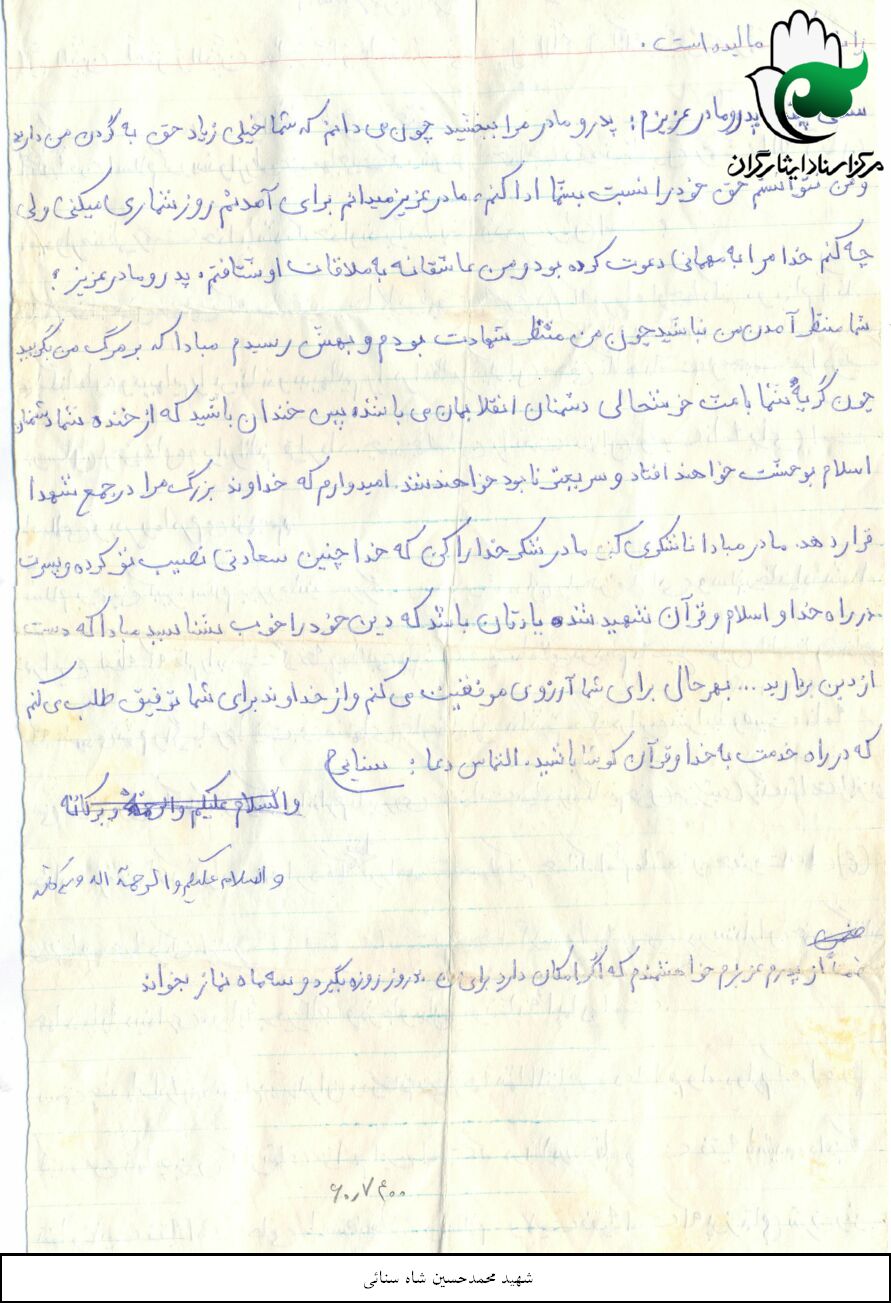 مالیده است.
پدر و مادر عزیزم: پدر و مادر مرا ببخشید چون می دانم که شما خیلی زیاد حق به گردن من دارید
مرکز اسناد ایثارگران
و من نتوانستم حق خود را نسبت بشما ادا کنم، مادر عزیز میدانم برای آمدنم روز شماری میکنی ولی
چه کنم خدا مرا به مهمانی دعوت کرده بود و من عاشقانه به ملاقات او شتافتم، پدر و مادر عزیز؛
شما منتظر آمدن من نباشید چون من منتظر شهادت بودم و بهش رسیدم مبادا که بر مرگ من بگریید
چون گریهٔ شما باعث خوشحالی دشمنان انقلابمان می باشد، پس خندان باشید که از خنده شما دشمنان
اسلام بوحشت خواهند افتاد و سریعتر نابود خواهند شد. امیدوارم که خداوند بزرگ مرا در جمع شهدا
قرار دهد. مادر مبادا ناشکری کنی مادر شکر خدا را کن که خدا چنین سعادتی نصیب تو کرده و پسرت
در راه خدا و اسلام و قرآن شهید شده یادتان باشد که دین خود را خوب بشناسید مبادا که دست
از دین بردارید ... بهرحال برای شما آرزوی موفقیت می کنم و از خداوند برای شما توفیق طلب می کنم
که در راه خدمت به خدا و قرآن کوشا باشید. التماس دعا؛ سنایی
والسلام علیکم و الرحمة و برکاته
والسلام علیکم و الرحمة اله و برکاته
ضمناً از پدرم عزیزم خواهشمندم که اگر امکان دارد برای من روز روزه بگیرد و سه ماه نماز بخواند
شهید محمدحسین شاه سنائی